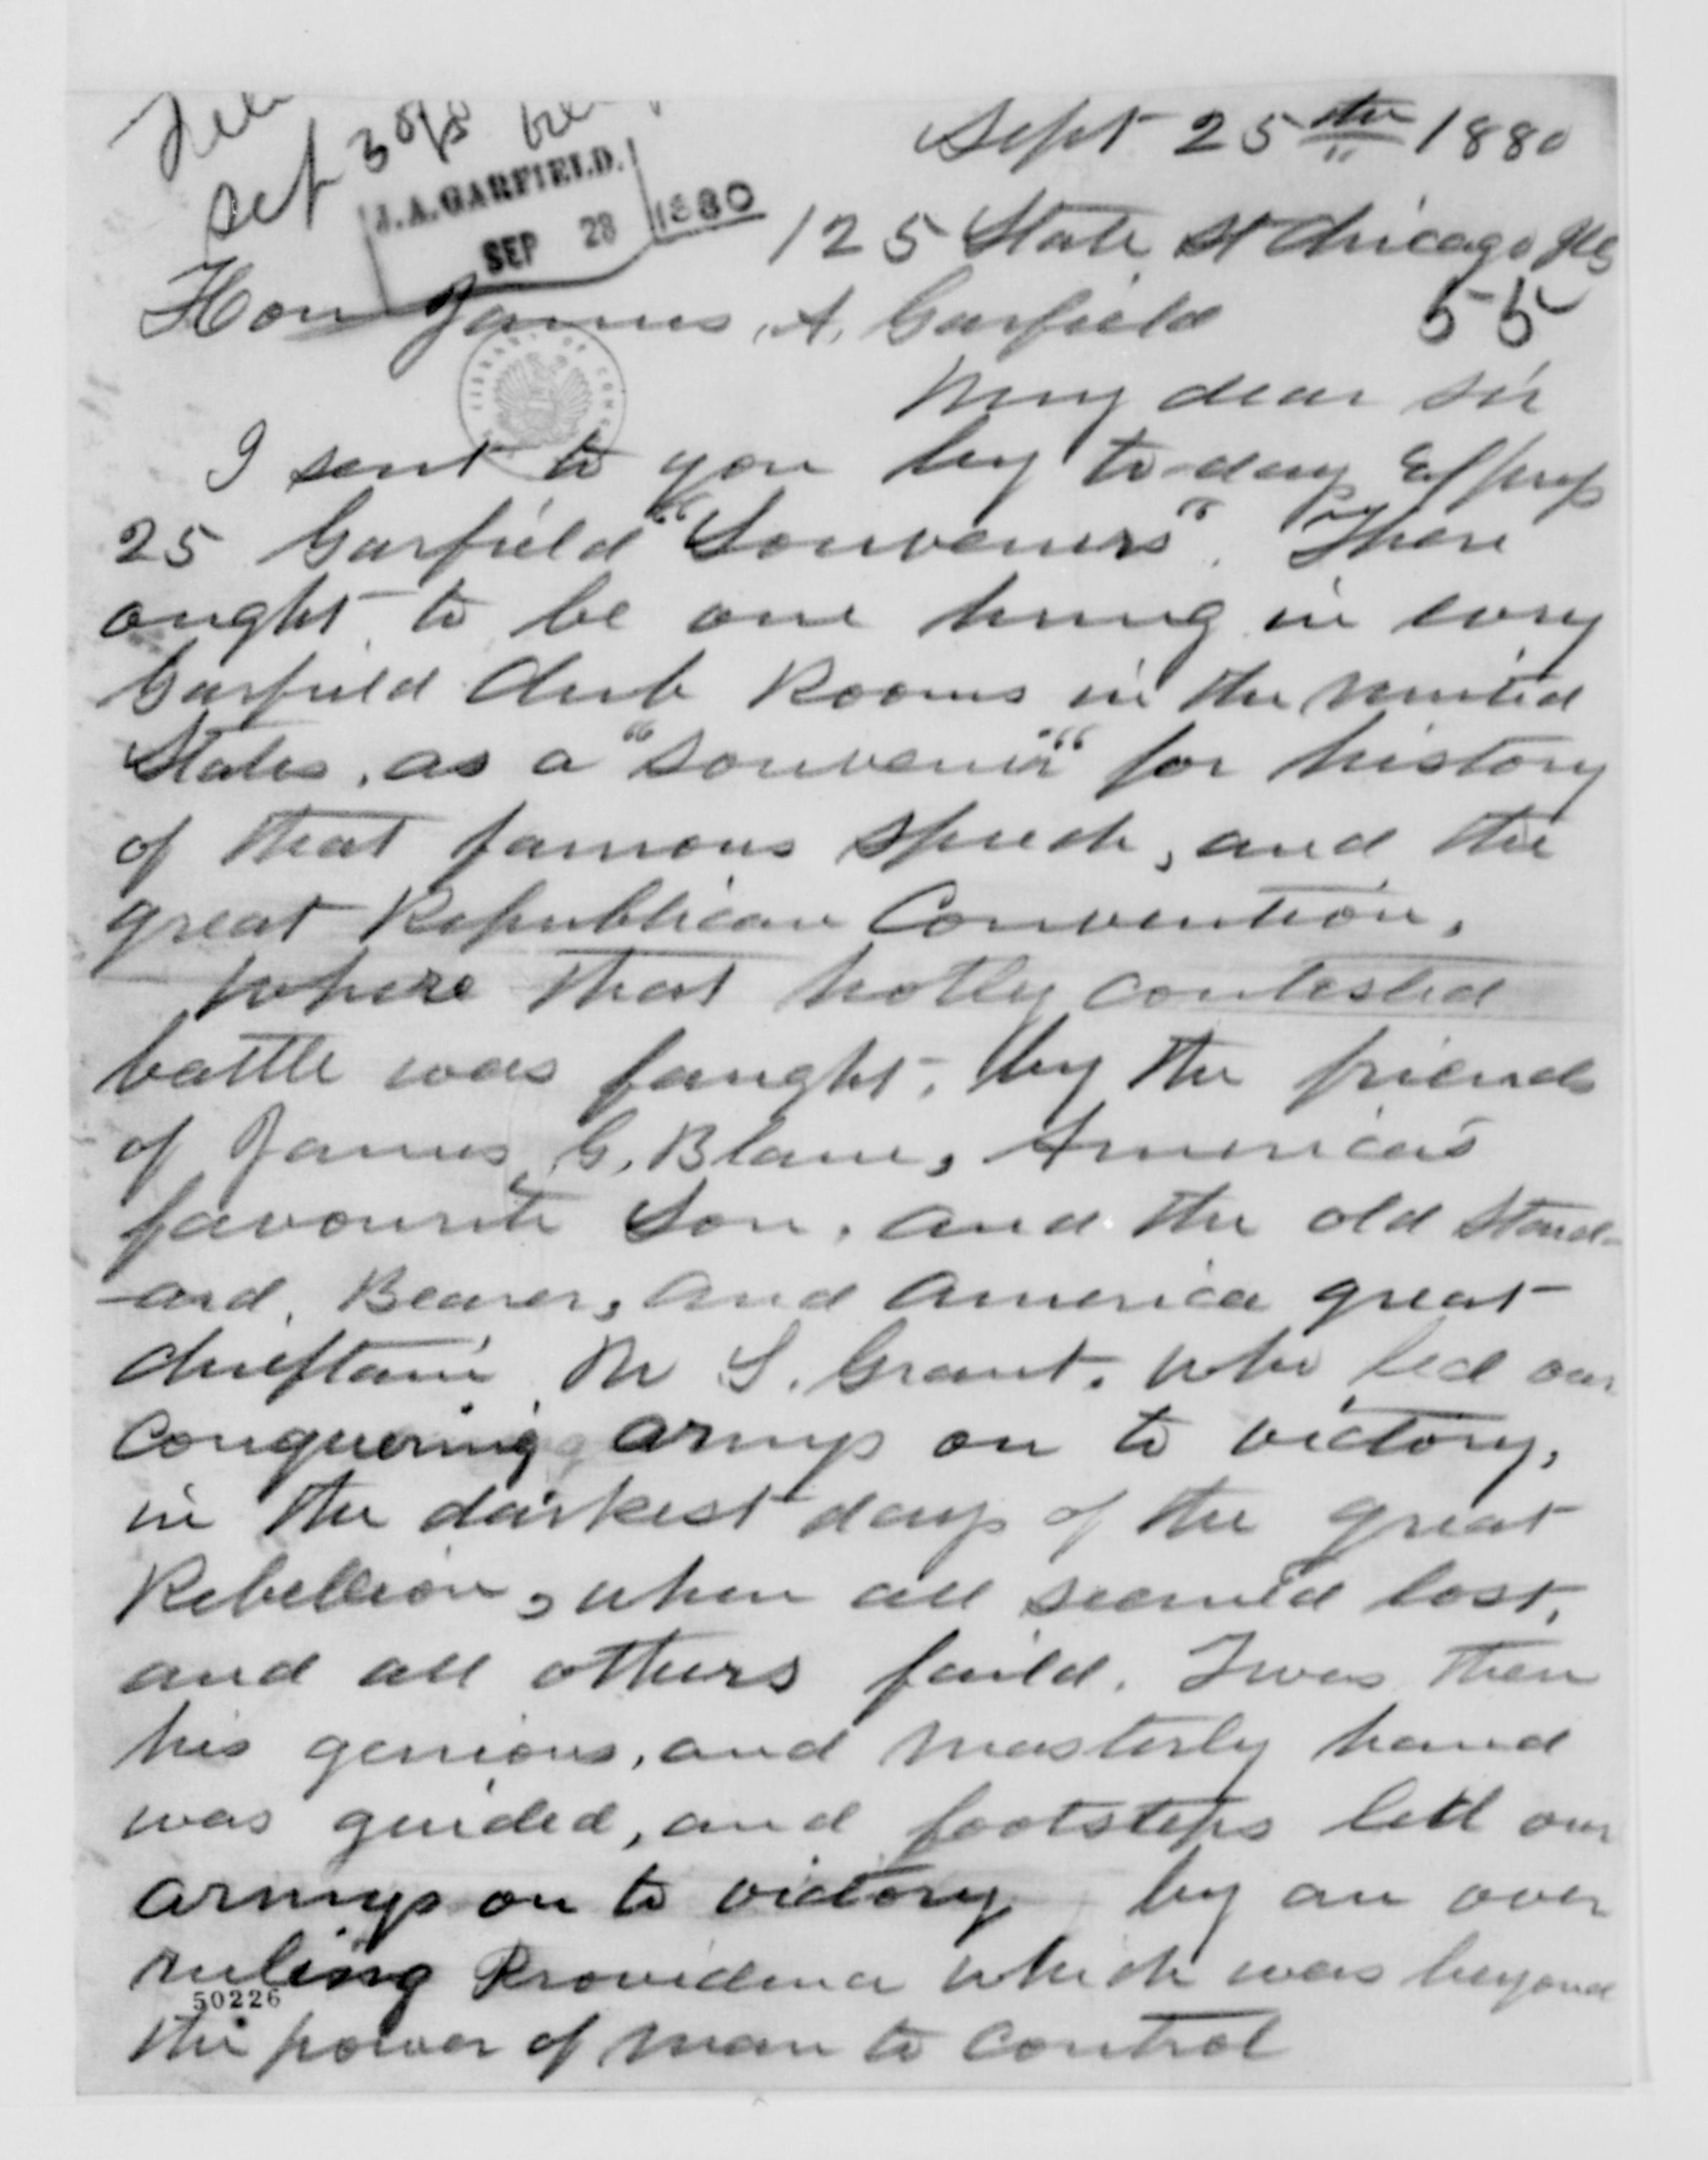 Sept 25th 1880
J.A. GARFIELD.
SEP 28 1880
125 State St Chicago Ills
Hon James A. Garfield
55
My dear sir
I sent to you by to-day Express
25 Garfield "Souveniers". There
ought to be one hung in every
Garfield Club Rooms in the United
States, as a "souvenir" for history
of that famous speech, and the
great Republican Convention,
where that hotly contested
battle was faught, by the friends
of James G. Blaine, America's
favourite Son, and the old Stand-
-ard, Bearer, and America great
chieftain U S. Grant, who led our
Conquering armys on to victory,
in the darkest days of the great
Rebellion, when all seemed lost,
and all others faild. Twas then
his genious, and masterly hand
was guided, and footsteps led our
armys on to victory by an over
ruling Providence which was beyond
50226
the power of man to control